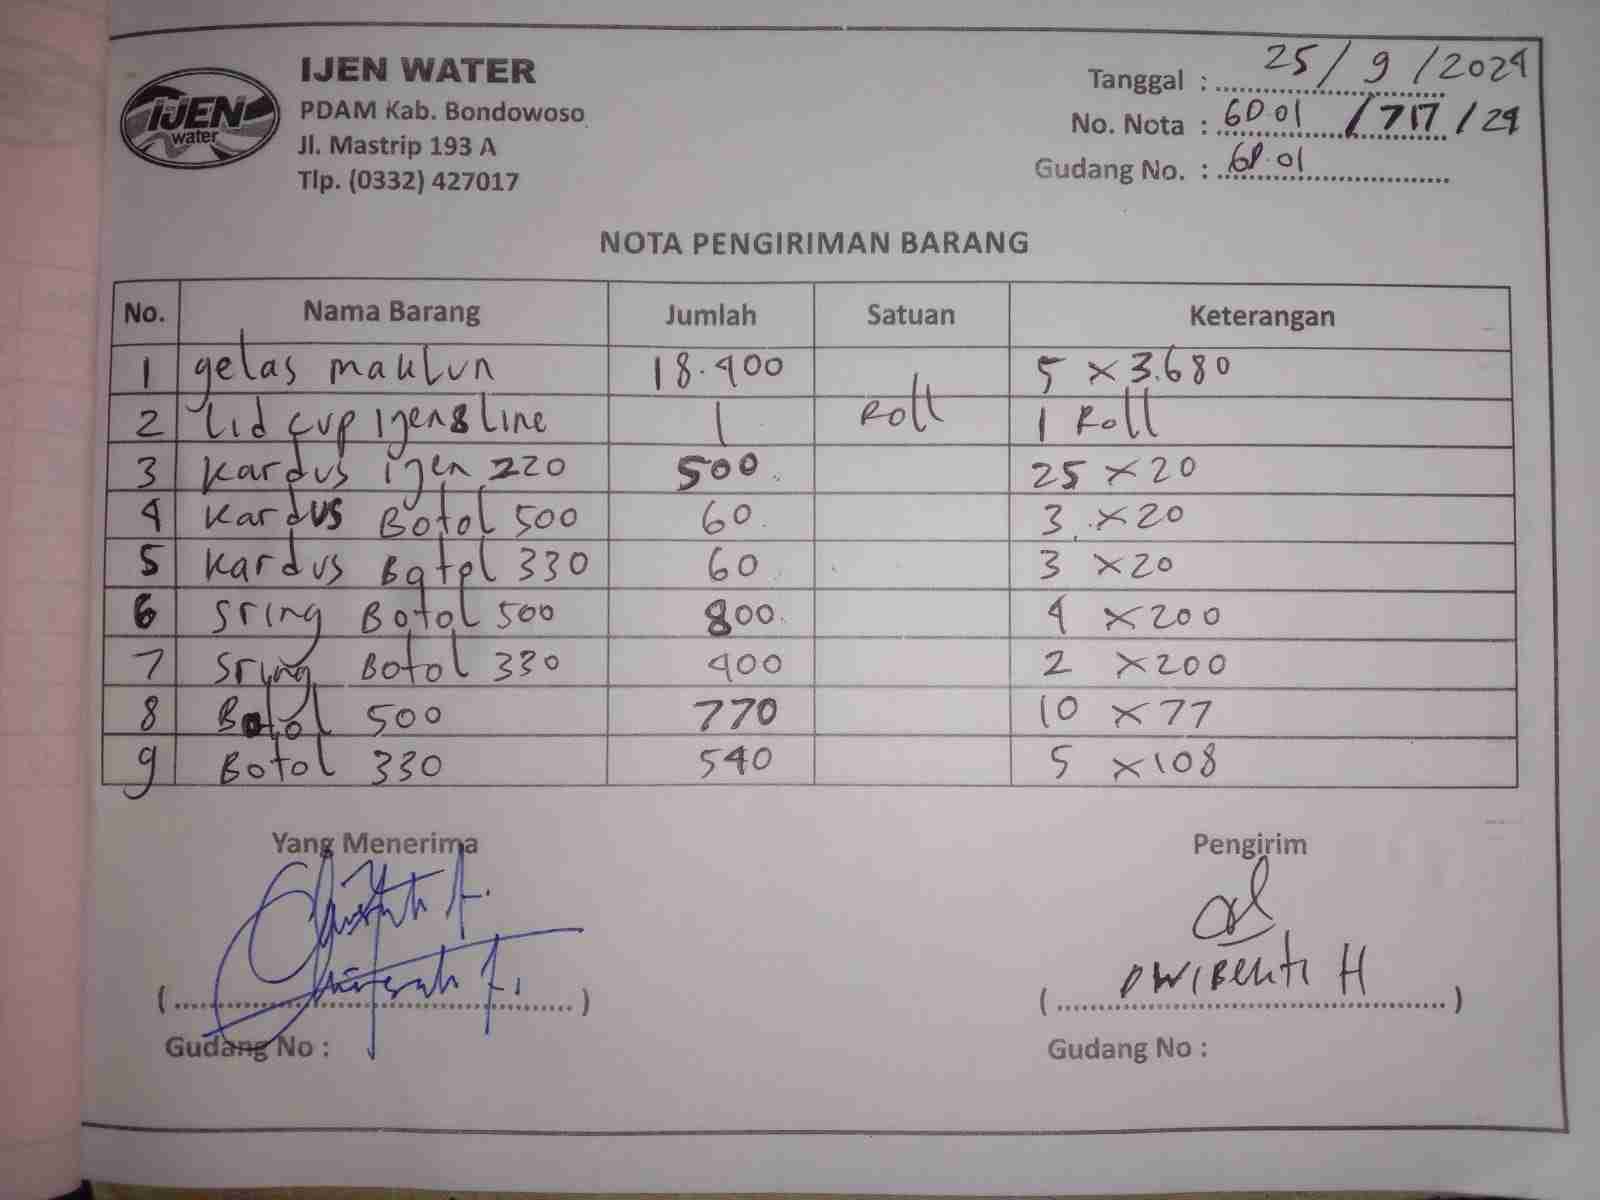 IJEN WATER
IJEN
water
PDAM Kab. Bondowoso
Jl. Mastrip 193 A
Tlp. (0332) 427017
Tanggal : 25 / 9 / 2024
No. Nota : 60.01 / 717 / 24
Gudang No. : 60.01
NOTA PENGIRIMAN BARANG
No. Nama Barang Jumlah Satuan Keterangan
1 gelas maklun 18.400 5 x 3.680
2 Lid cup ijen 8 line 1 Roll 1 Roll
3 Kardus ijen 220 500 25 x 20
4 Kardus Botol 500 60 3 x 20
5 Kardus Botol 330 60 3 x 20
6 Sring Botol 500 800 4 x 200
7 Sring Botol 330 400 2 x 200
8 Botol 500 770 10 x 77
9 Botol 330 540 5 x 108
Yang Menerima Pengirim
( ) ( Dwi H )
Gudang No : Gudang No :